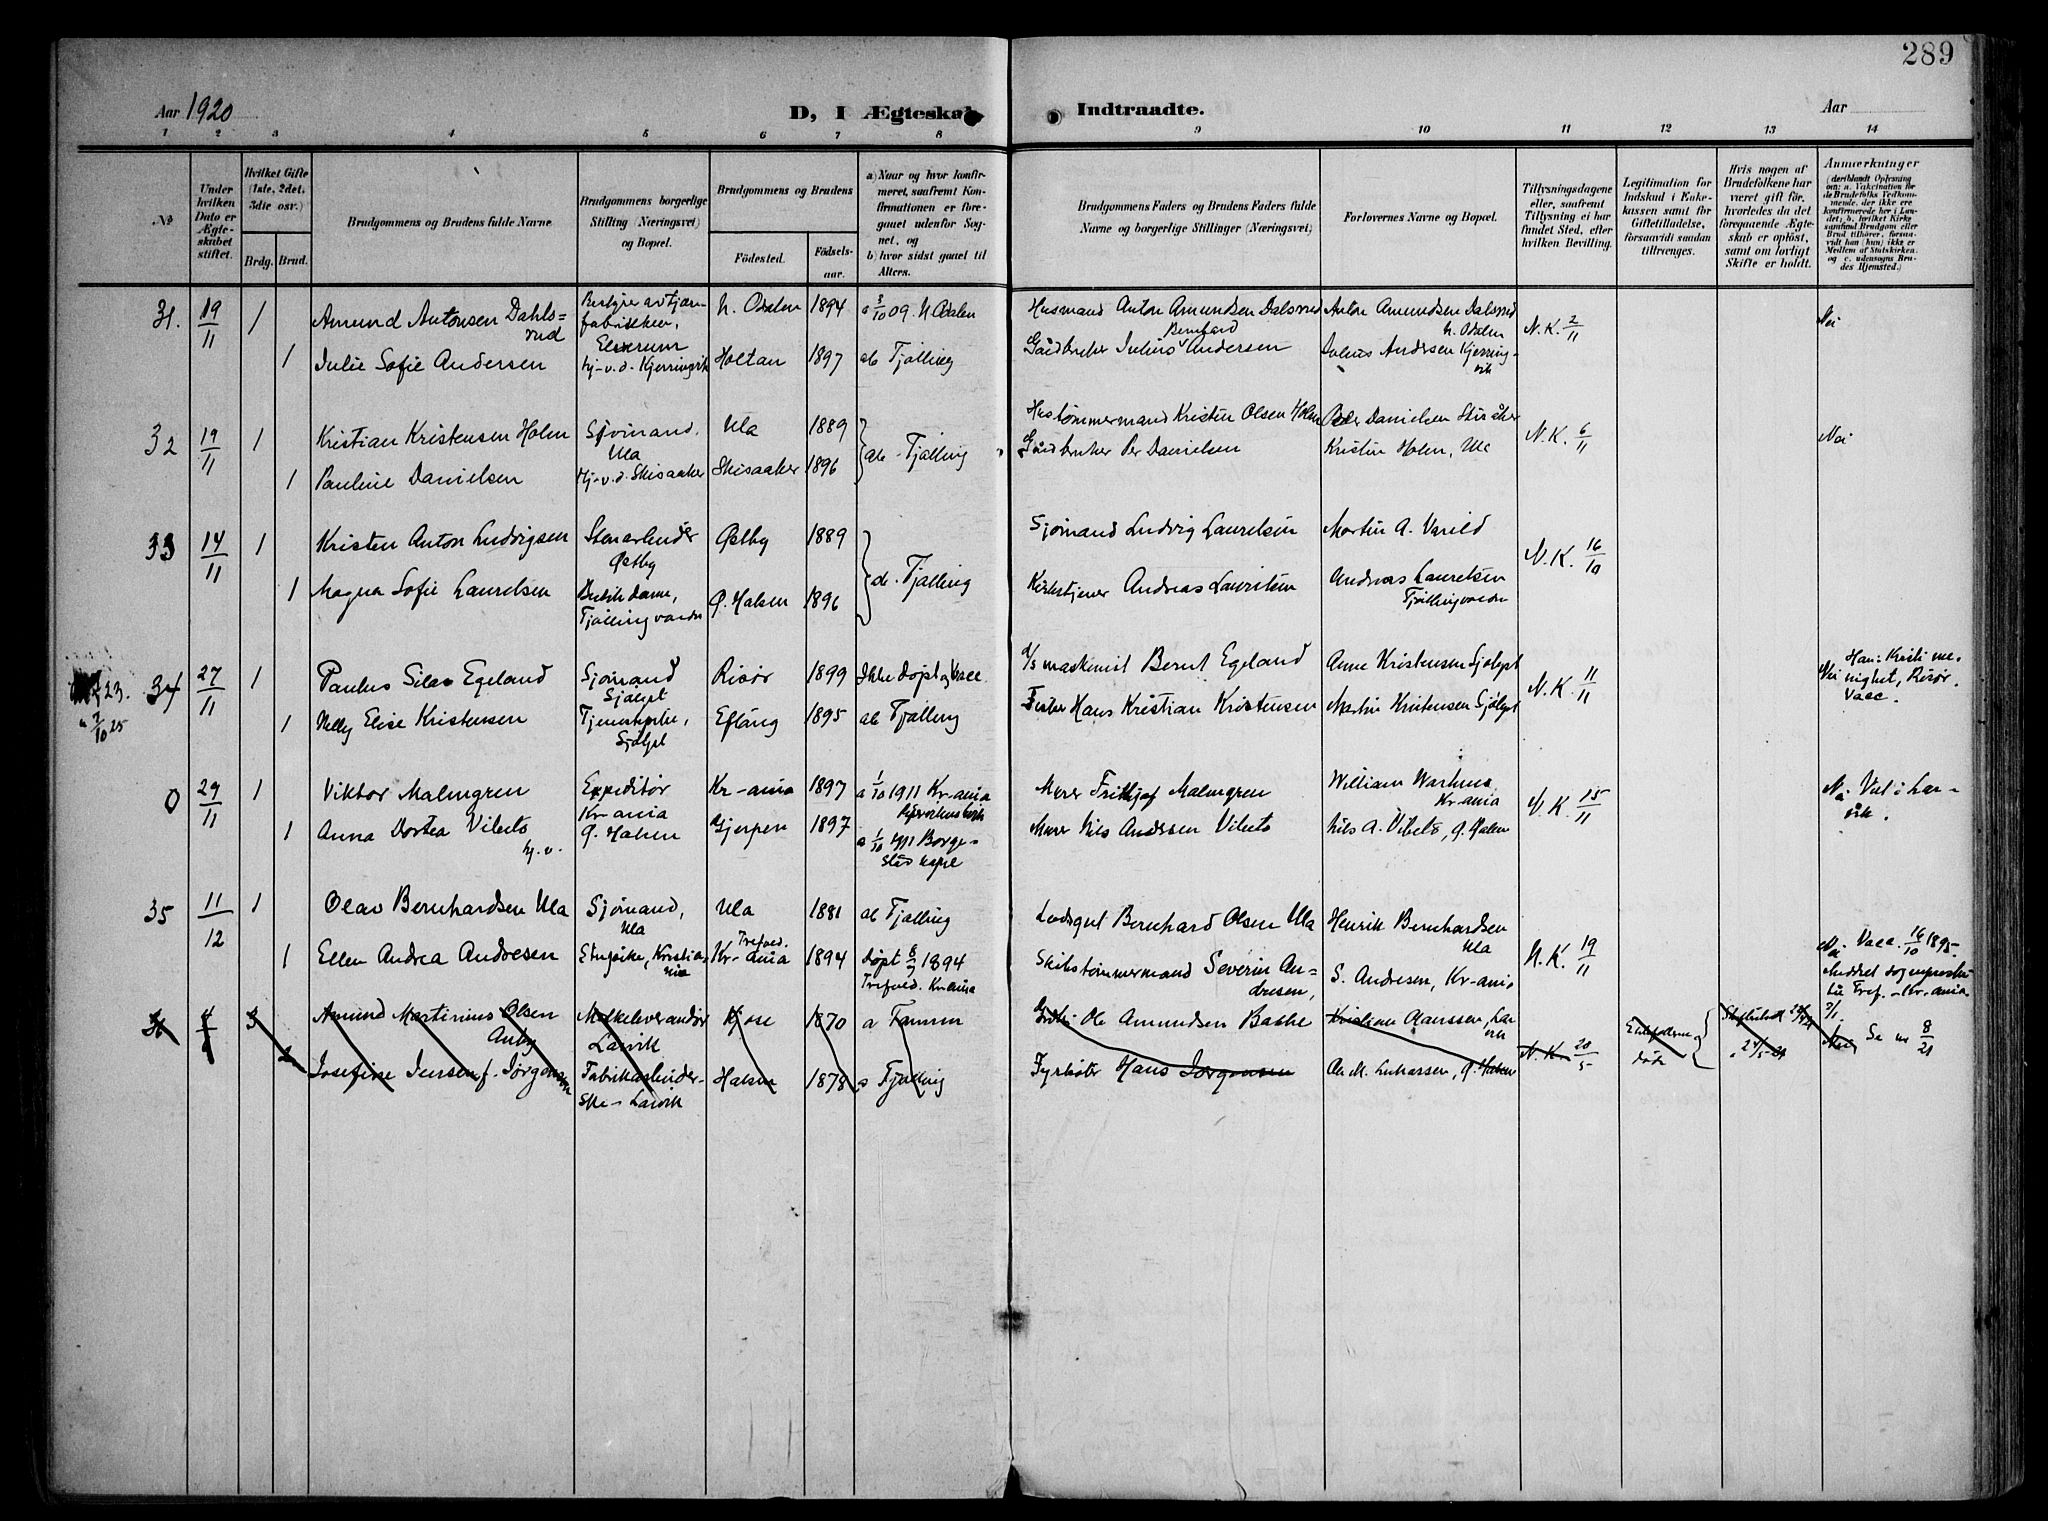 289
Aar 1920
D, I Ægteskab
Indtraadte.
Aar
1 2 3 4 5 6 7 8 9 10 11 12 13 14
№
Under hvilken Dato er Ægteskabet stiftet.
Hvilket Gifte (1ste, 2det, 3die osv.)
Brdg. Brud.
Brudgommens og Brudens fulde Navne
Brudgommens borgerlige Stilling (Næringsvei) og Bopæl.
Brudgommens og Brudens
Födested.
Födselsaar.
a) Naar og hvor konfirmeret, saafremt Konfirmationen er foregaaet udenfor Sognet, og
b) hvor sidst gaaet til Alters.
Brudgommens Faders og Brudens Faders fulde Navne og borgerlige Stillinger (Næringsvei)
Forlovernes Navne og Bopæl.
Tillysningsdagene eller, saafremt Tillysning ei har fundet Sted, efter hvilken Bevilling.
Legitimation for Indskud i Enkekassen samt for Giftetilladelse, forsaavidt saadan tiltrænges.
Hvis nogen af Brudefolkene har været gift för, hvorledes da det foregaaende Ægteskab er oplöst, samt om lovligt Skifte er holdt.
Anmærkninger
(deriblandt Oplysning om: a. Vakcination for de Brudefolks Vedkommende, der ikke ere konfirmerede her i Landet; b. hvilket Kirkesamfund Brudgom eller Brud tilhörer, forsaavidt han (hun) ikke er Medlem af Statskirken, og c. udensogns Brudes Hjemsted.)
31. 19/11 1 Amund Antonsen Dahlsrud
Elverum N. Odalen 1894 a 3/10 09. N Odalen
Husmand Anton Amundsen Dalsrud
Anton Amundsen Dalsrud N. Odalen
N. K. 2/11 Nei
1 Julie Sofie Andersen hj-v.d. Kjerringvik Holtan 1897 ab Tjølling
Gårdbruker Julius Bernhard Andersen
Julius Andersen Kjerringvik
32 19/11 1 Kristian Kristensen Holm Sjömand, Ula Ula 1889
ab - Tjølling
Hustömmermand Kristen Olsen Holm
Peder Danielsen Skisåker
N. K. 6/11 Nei
1 Pauline Danielsen Hj-v.d. Skisaaker Skisaaker 1896
Gårdbruker Per Danielsen
Kristen Holm, Ula
33 14/11 1 Kristen Anton Ludvigsen Østby Østby 1889
ab. Tjølling
Sjömand Ludvig Lauretsen
Martin A. Varild
N. K. 16/10
1 Magna Sofie Lauretsen Butikdame, Ø. Halsen 1896
Kirketjener Andreas Lauritsen
Andreas Lauretsen
34 27/11 1 Paulus Silas Egeland Sjömand Sjölyst Risör 1899 Ikke döpt og Vacc.
maskinist Bernt Egeland
Anne Kristensen Sjölyst
N. K. 11/11
Han: Kristi menighet, Risör. Nei Vacc.
23.
7/10 25
1 Nelly Elise Kristensen Sjölyst Eftang 1895 ab Tjølling
Fisker Hans Kristian Kristensen
Martin Kristensen Sjölyst
0 29/11 1 Viktor Malmgren Expeditör Kr-ania Kr-ania 1897 a 1/10 1911 Kr-ania
Murer Frithjof Malmgren
William Warhus Kr-ania
N. K. 15/11
Nei Viet i Larvik.
1 Anna Dortea Vibeto hj. v. Ø. Halsen Gjerpen 1897 a 1/10 1911 Borgestad kapel
Murer Nils Andersen Vibeto
Nils A. Vibeto, Ø. Halsen
35 11/12 1 Olav Bernhardsen Ula Sjömand, Ula Ula 1881 ab Tjølling
Lodsgut Bernhard Olsen Ula
Henrik Bernhardsen Ula
N. K. 19/11
1 Ellen Andrea Andresen Kristiania Trefold. Kr-ania 1894 Döpt 8/7 1894 Trefold. Kr.ania
Skibstömmermand Severin Andresen,
S. Andresen, Kr-ania
Nei Vacc. 16/10 1895.
36 3 Amund Martinius Olsen Auby Melkeleverandör Larvik Kjose 1870 a Tanum
Ole Amundsen Bakke
Kristian Hanssen, Larvik
N. K. 20/5
Ektefellerne döde
Nei Se nr 8/21
2 Josefine Jensen f. Jörgensen Fabrikarbeiderske - Larvik Halsen 1878 a Tjølling
Fyrböter Hans Jörgensen
Ole M. Lukassen, Ø. Halsen